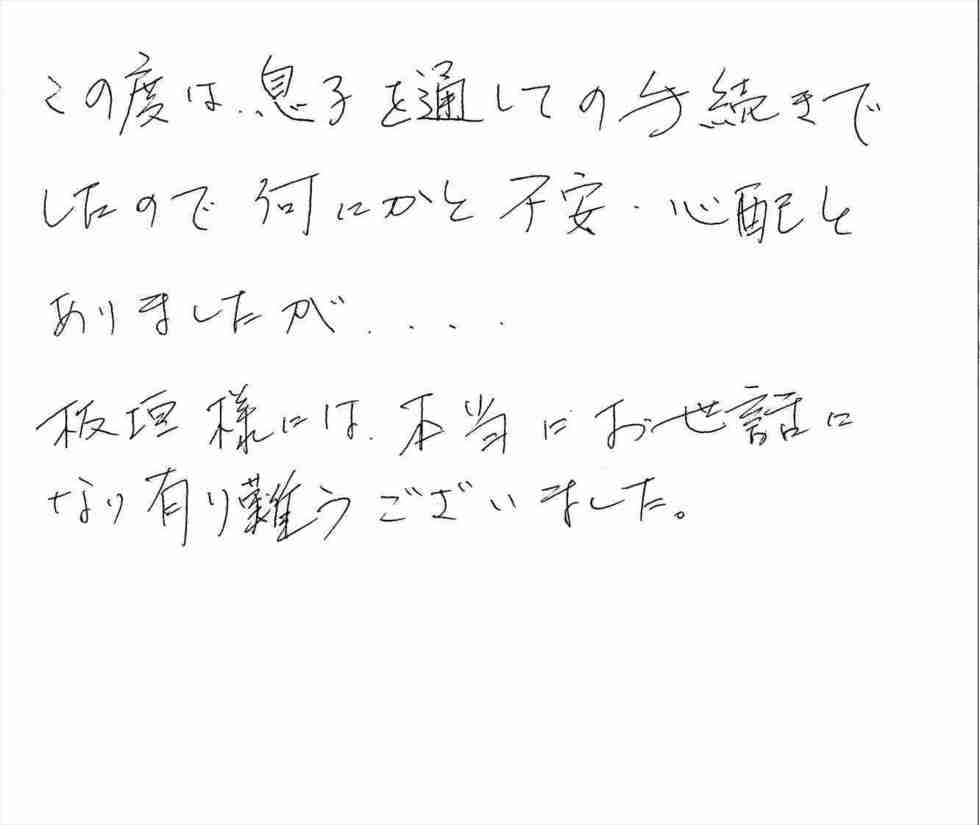 この度は、息子を通しての手続きで
したので何にかと不安・心配も
ありましたが....
板垣様には、本当にお世話に
なり有り難うございました。